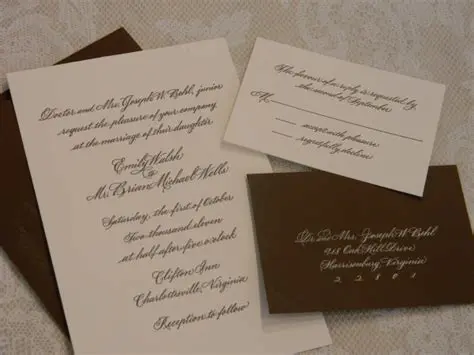 Doctor and Mrs. Joseph W. Behl, junior
request the pleasure of your company
at the marriage of their daughter
Emily Walsh
to
Mr. Brian Michael Wells
Saturday, the first of October
Two thousand eleven
at half after five o'clock
Clifton Inn
Charlottesville, Virginia
Reception to follow
The favour of a reply is requested by
the second of September
M
accept with pleasure
regretfully decline
Dr. and Mrs. Joseph W. Behl
Oak Hill Drive
Harrisonburg, Virginia
2 2 8 0 1